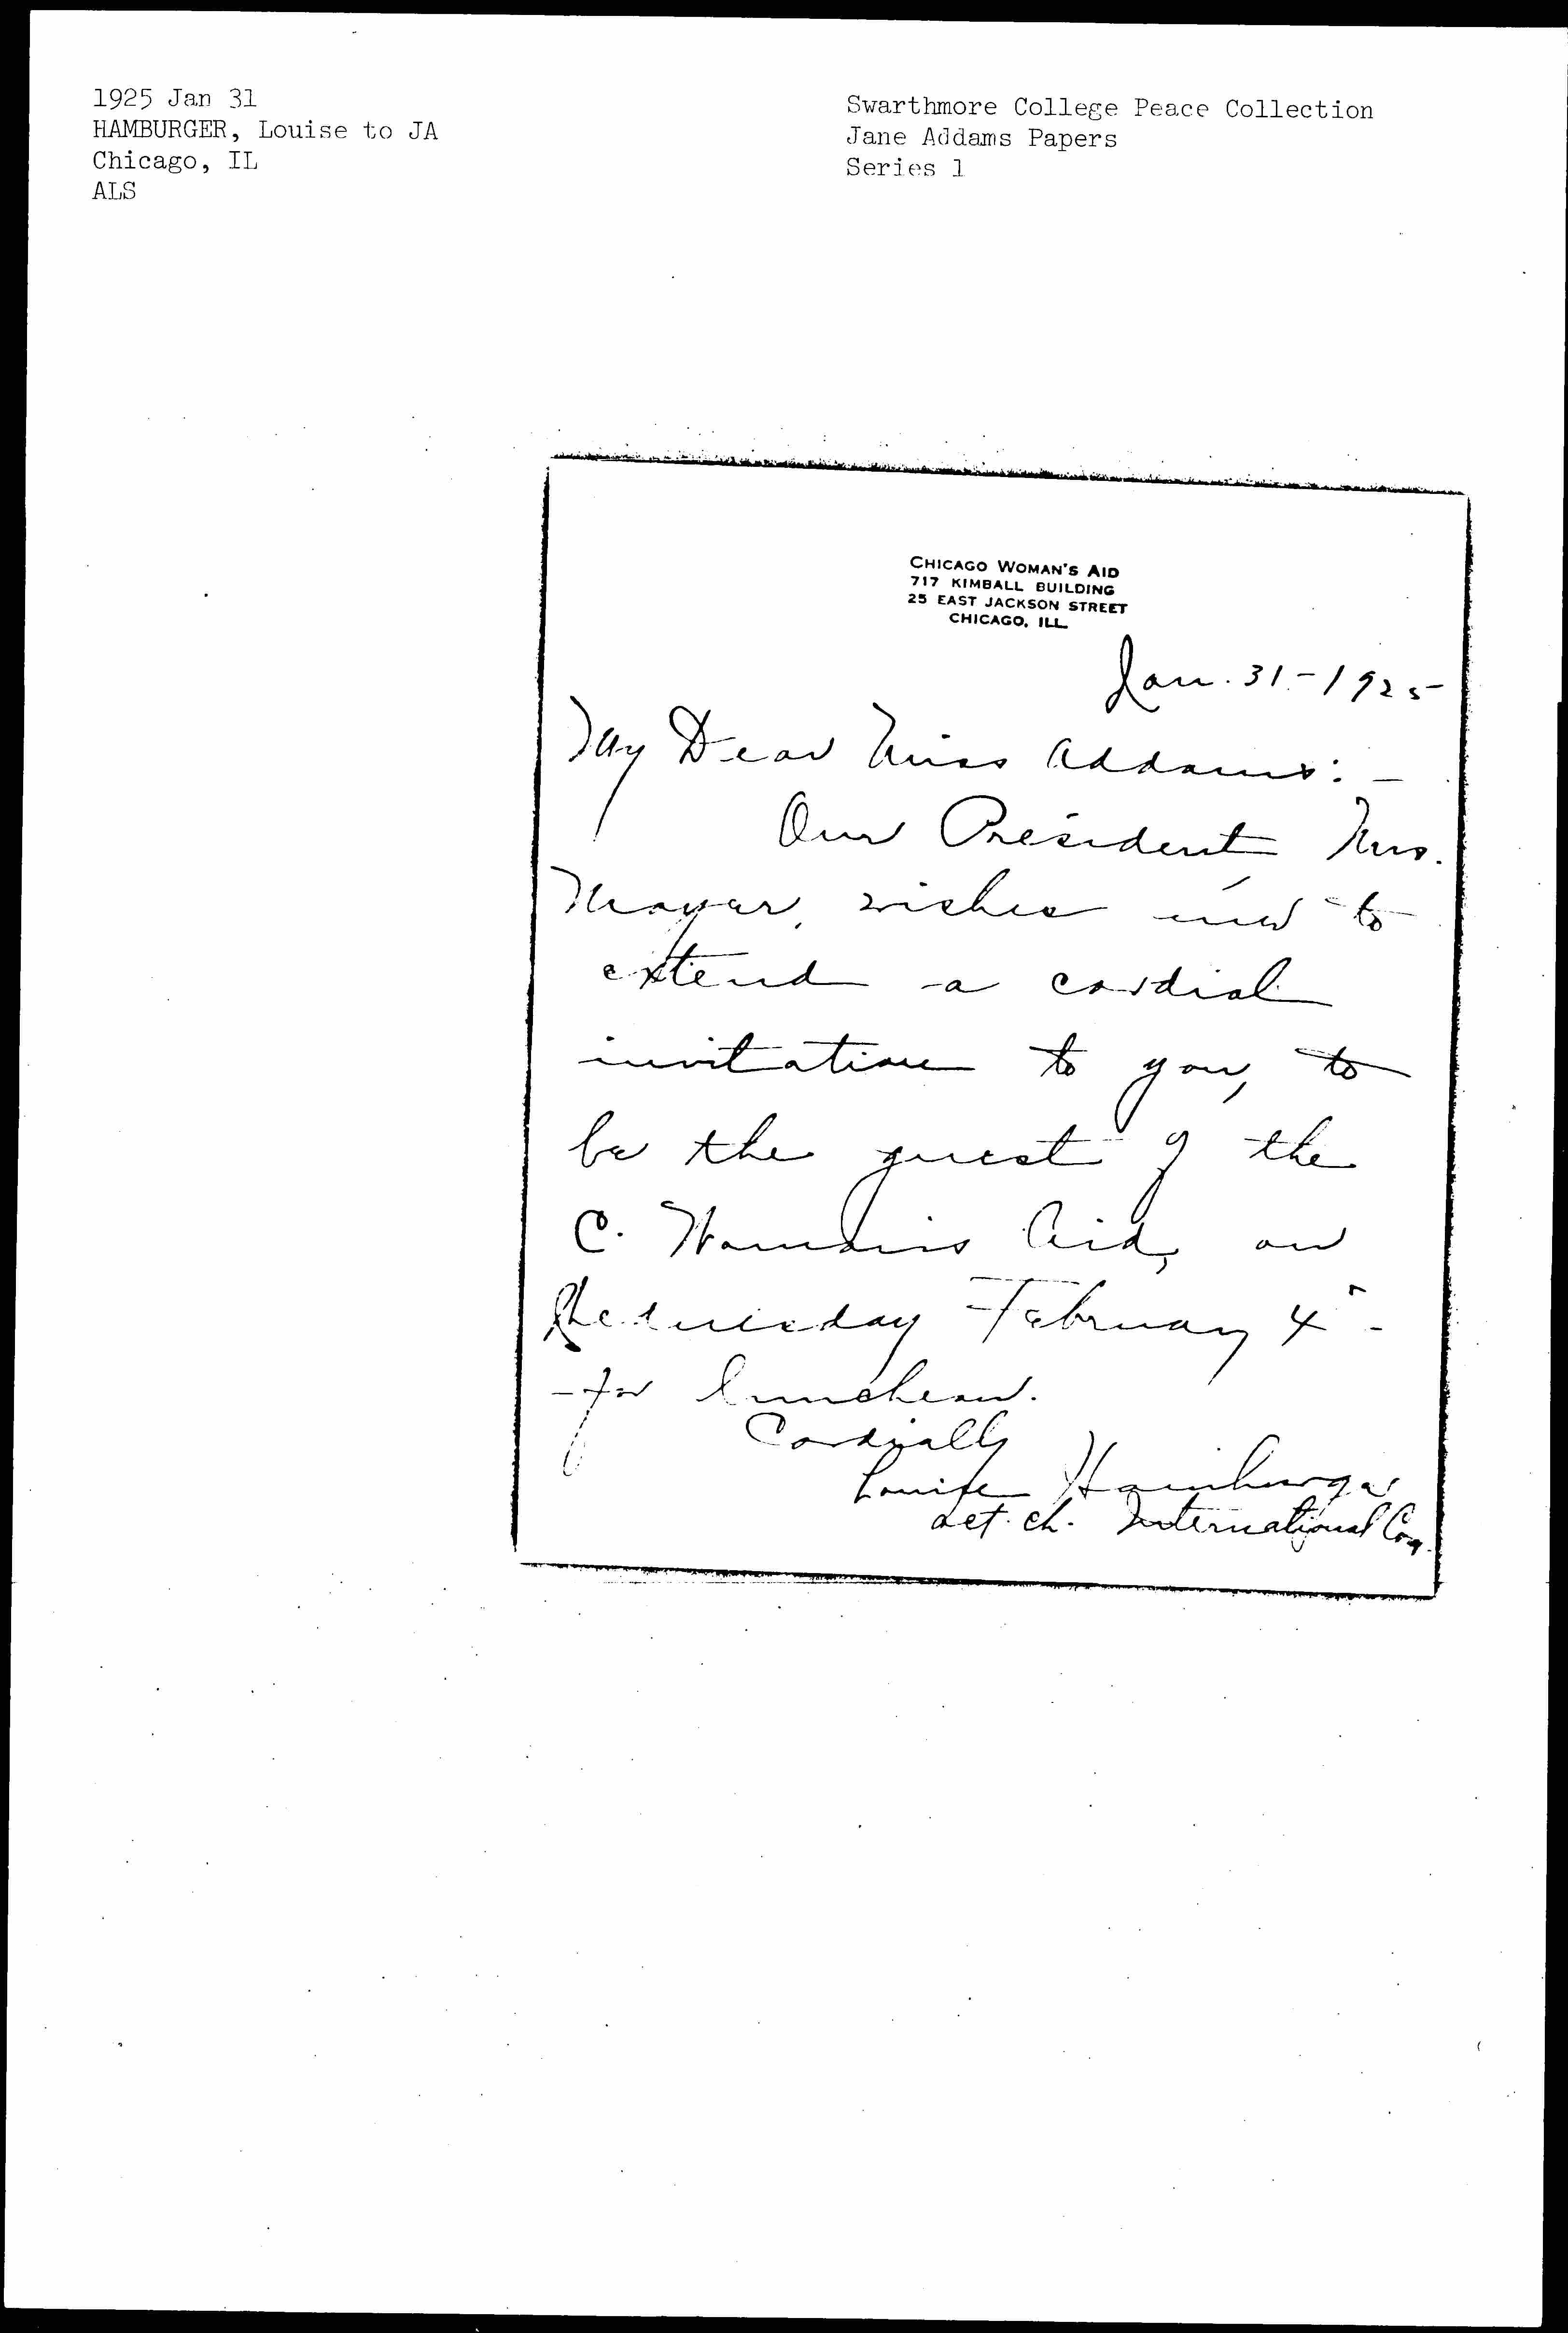 1925 Jan 31
HAMBURGER, Louise to JA
Chicago, IL
ALS
Swarthmore College Peace Collection
Jane Addams Papers
Series 1
CHICAGO WOMAN'S AID
717 KIMBALL BUILDING
25 EAST JACKSON STREET
CHICAGO, ILL.
Jan. 31 - 1925
My Dear Miss Addams: -
Our President, Mrs.
Mayer, wishes me to
extend a cordial
invitation to you, to
be the guest of the
C. Woman's Aid, on
Wednesday February 4" -
- for luncheon.
Cordially
Louise Hamburger
Act. Ch. International Com.